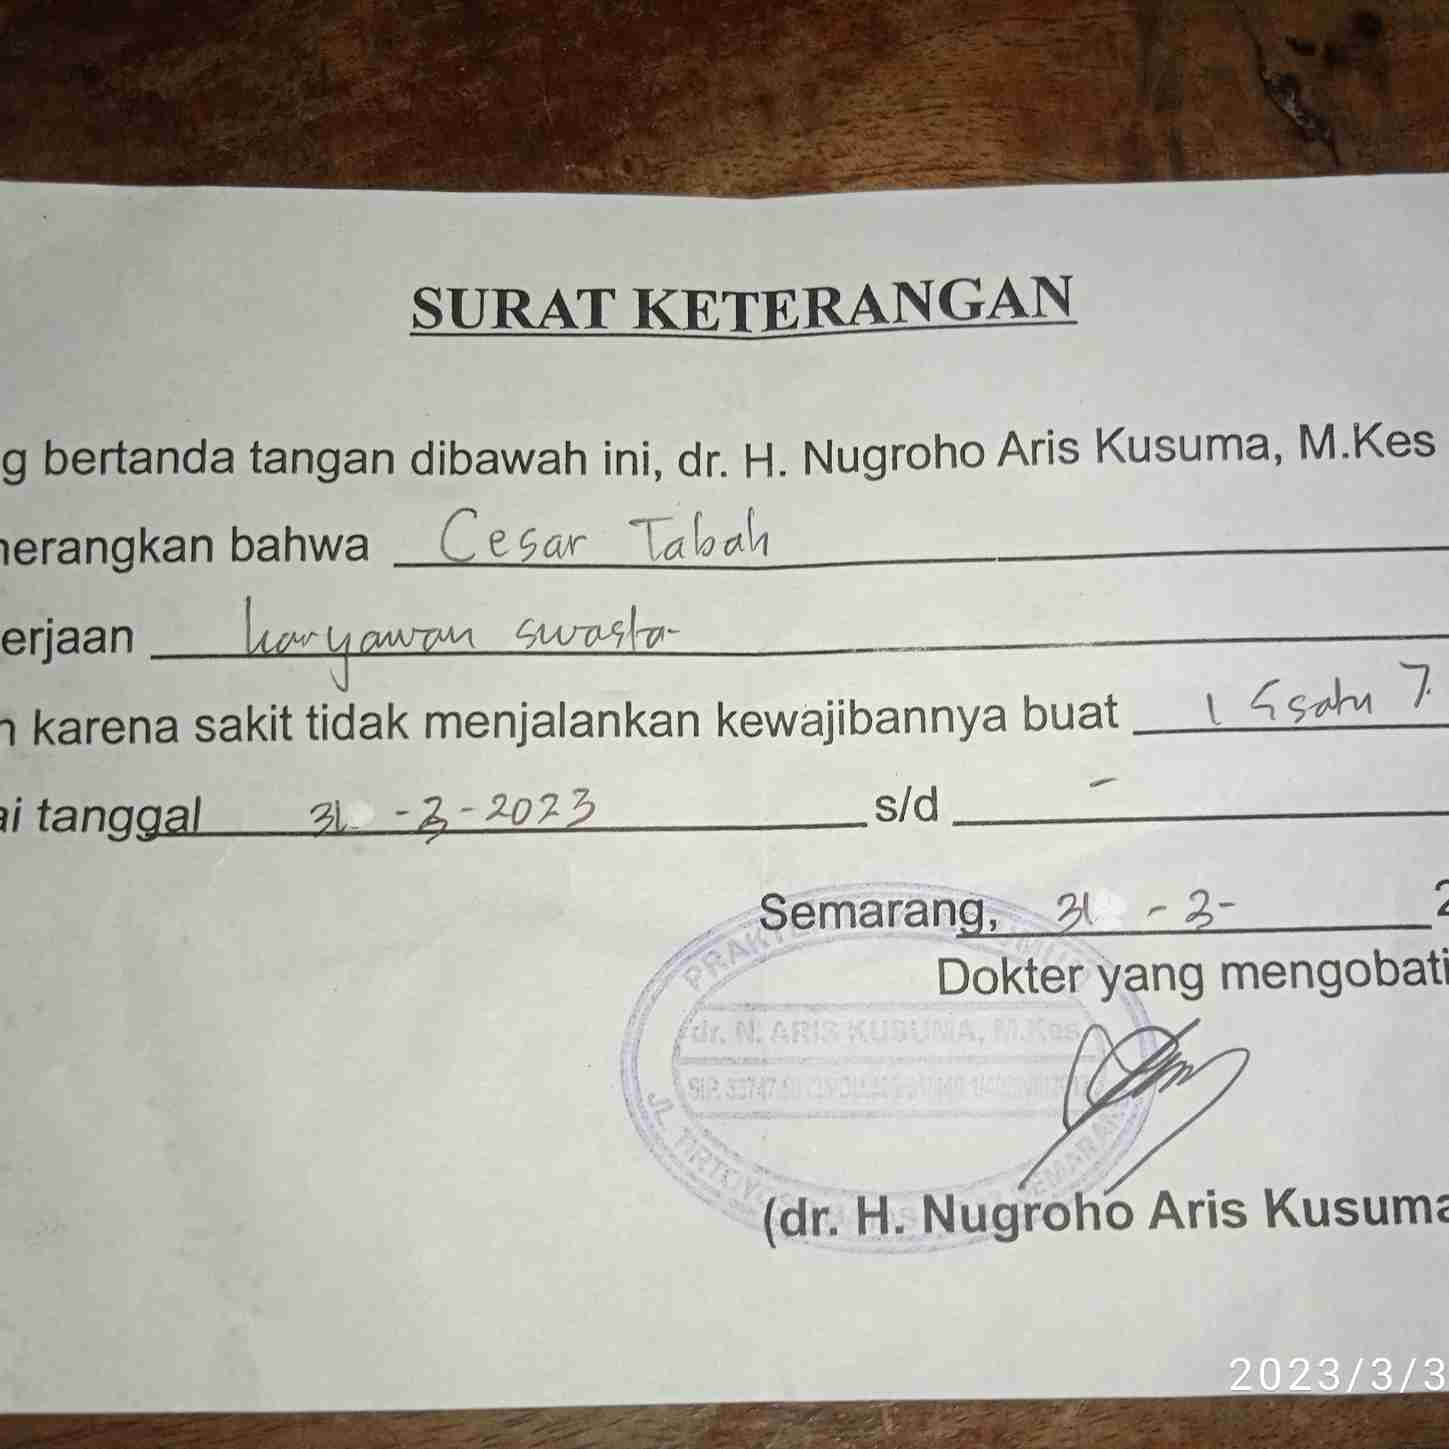 SURAT KETERANGAN
g bertanda tangan dibawah ini, dr. H. Nugroho Aris Kusuma, M.Kes
nerangkan bahwa Cesar Tabah
erjaan karyawan swasta
n karena sakit tidak menjalankan kewajibannya buat 1 (satu)
ai tanggal 31 -3-2023 s/d -
Semarang, 31 -3- 2
Dokter yang mengobati
PRAKT
dr. N. ARIS KUSUMA, M.Kes
JL. TIRTO
SEMARAN
(dr. H. Nugroho Aris Kusuma
2023/3/3